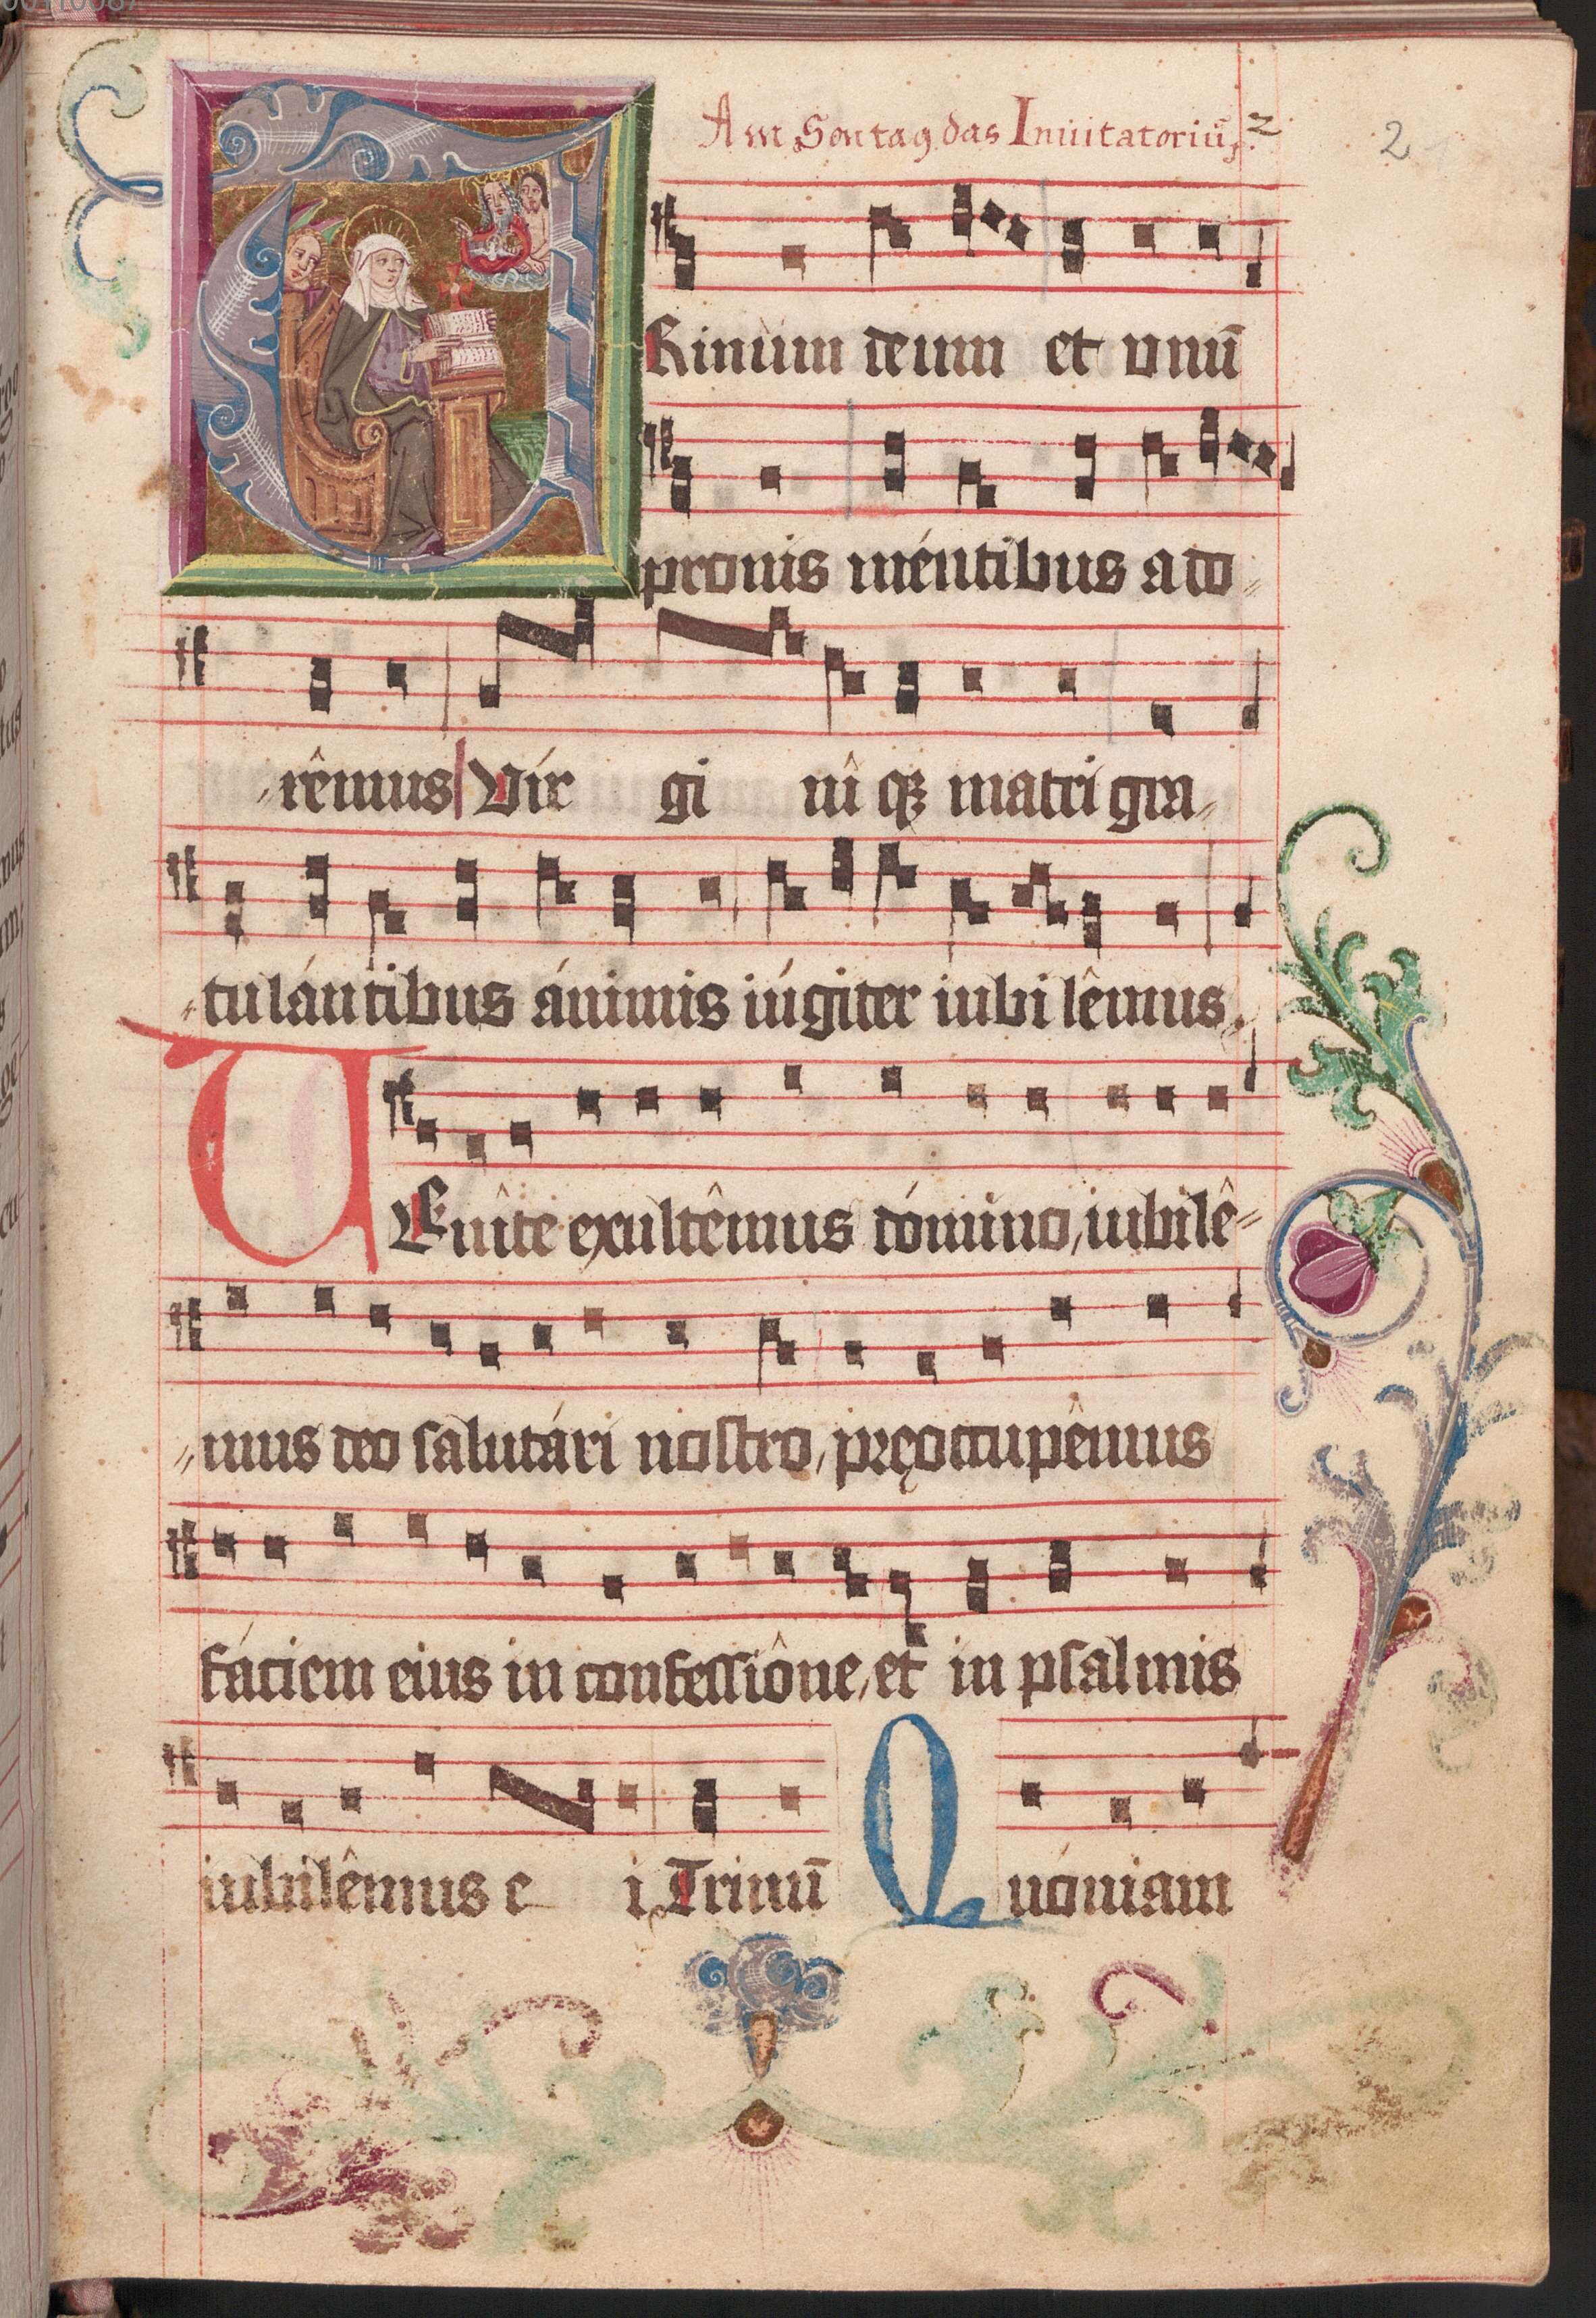 Am Sontag das Inuitatoriū. 2
2
TRinum deum et vnū
pronis méntibus ado⸗
⸗rêmus Vir gi ni qꝫ matri gra⸗
⸗tulántibus ánimis iúgiter iubi lêmus.
VEnîte exultêmus dómino, iubilê⸗
⸗mus deo salutári nostro, pręoccupêmus
fáciem eius in confessiône, et in psalmis
iubilêmus e i, Trinū Quóniam